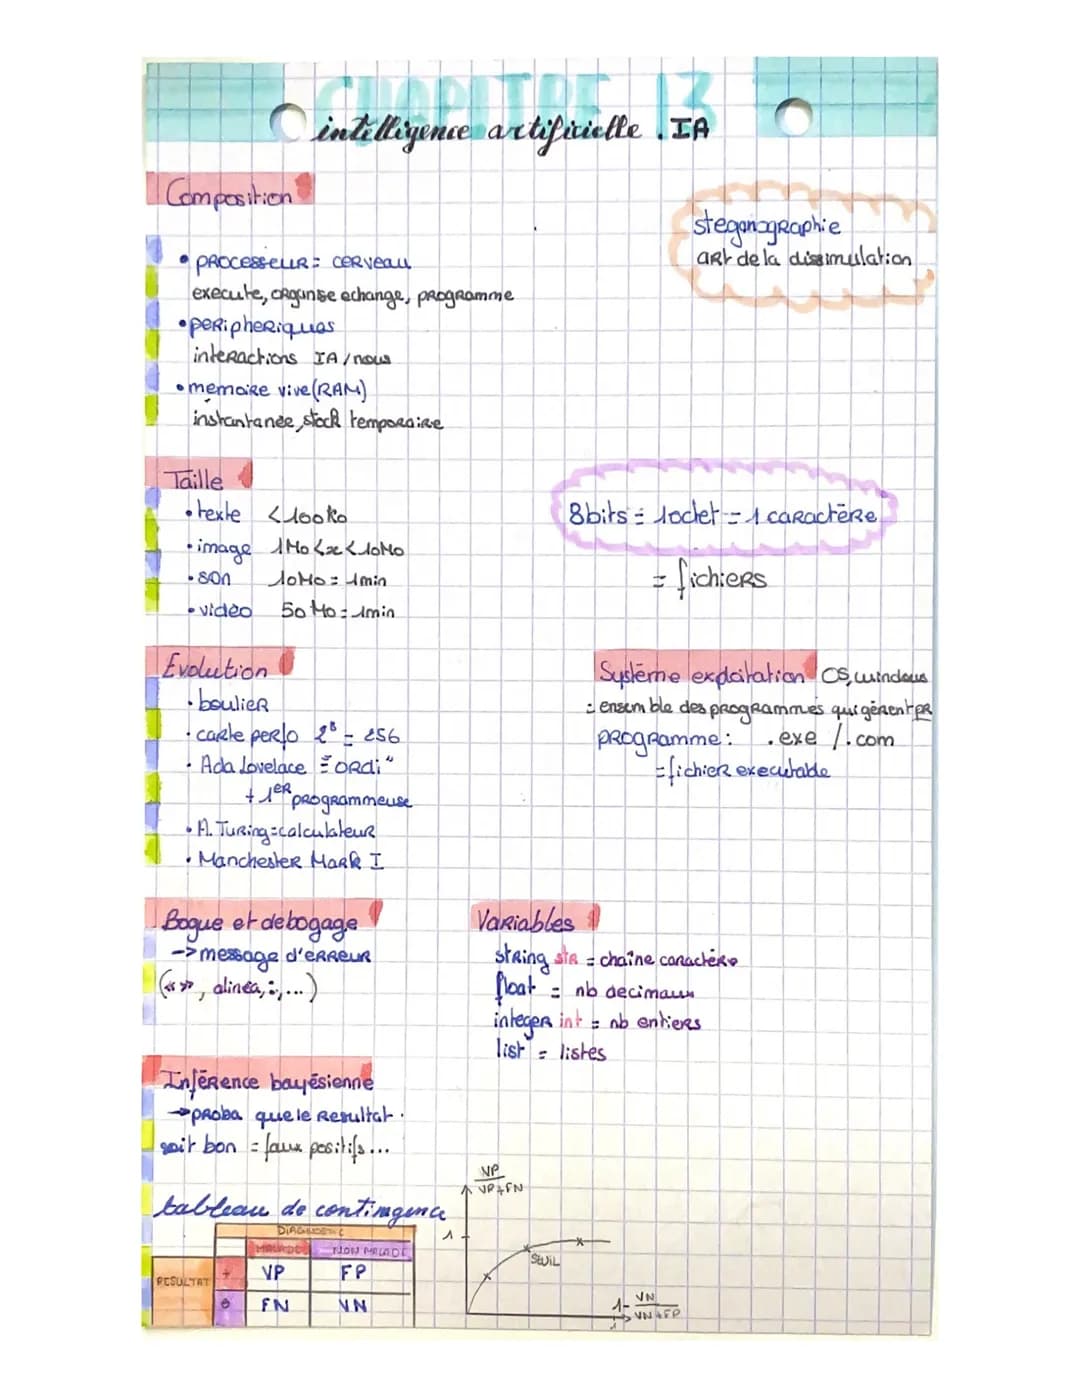 CHAPITRE 13
intelligence artificielle . IA
Composition
steganographie
art de la dissimulation
• processeur = cerveau
execute, organise echange, programme
• peripheriques
interactions IA / nous
• memoire vive (RAM)
instantanée, stock temporaire
Taille
• texte < 100ko
• image 1Mo < x < 10Mo
• son 10Mo = 1min
• vidéo 50 Mo = 1min
8bits = 1octet = 1 caractère
= fichiers
Evolution
• boulier
• carte perfo 2⁸ = 256
• Ada Lovelace = "ordi"
+ 1er programmeuse
• A. Turing = calculateur
• Manchester Mark I
Système exploitation OS, windows
= ensemble des programmes qui gèrent PR
programme : .exe / .com
= fichier executable
Bogue et debogage
-> message d'erreur
(« », alinéa, :, ...)
Variables
string str = chaîne caractère
float = nb decimaux
integer int = nb entiers
list = listes
Inférence bayésienne
→ proba que le resultat
soit bon = faux positifs ...
tableau de contingence
DIAGNOSTIC
MALADE NON MALADE
RESULTAT + VP FP
⊖ FN VN
VP
VP+FN
1
SEUIL
1- VN
VN+FP
1